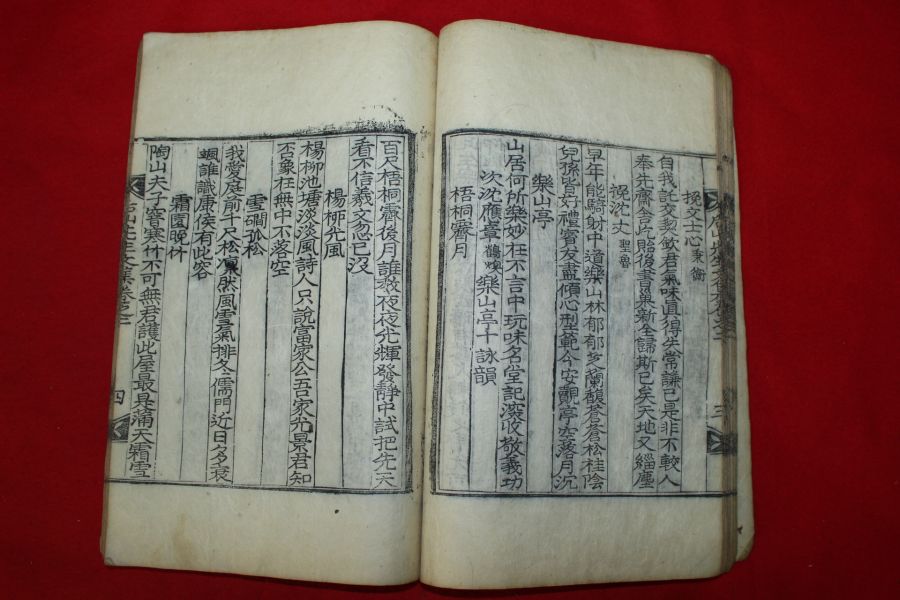 挽文士心 秉衡
自我記交契欽君氣味眞得失常謙已是非不較人
奉先齋舍片貽後書巢新全歸斯已矣天地又緇塵
挽沈丈 聖魯
早年能騎射中道樂山林郁郁芝蘭馥蒼蒼松桂陰
兒孫皆好禮賓友盡傾心型範今安覿亭空落月沉
樂山亭
山居何所樂妙在不言中玩味名堂記深收敬義功
次沈應臺 鶴喚 樂山亭十詠韻
梧桐霽月
百尺梧桐霽後月誰敎夜夜光輝發靜中試把先天
看不信羲文忽已沒
楊柳光風
楊柳池塘淡淡風詩人只說富家公吾家光景君知
否象在無中不落空
雪磵孤松
我愛庭前千尺松 然風雪氣排冬儒門近日多衰
颯誰識康侯有此容
霜園晩竹
陶山夫子 寒竹不可無君護此屋最是滿天霜雪
四
三